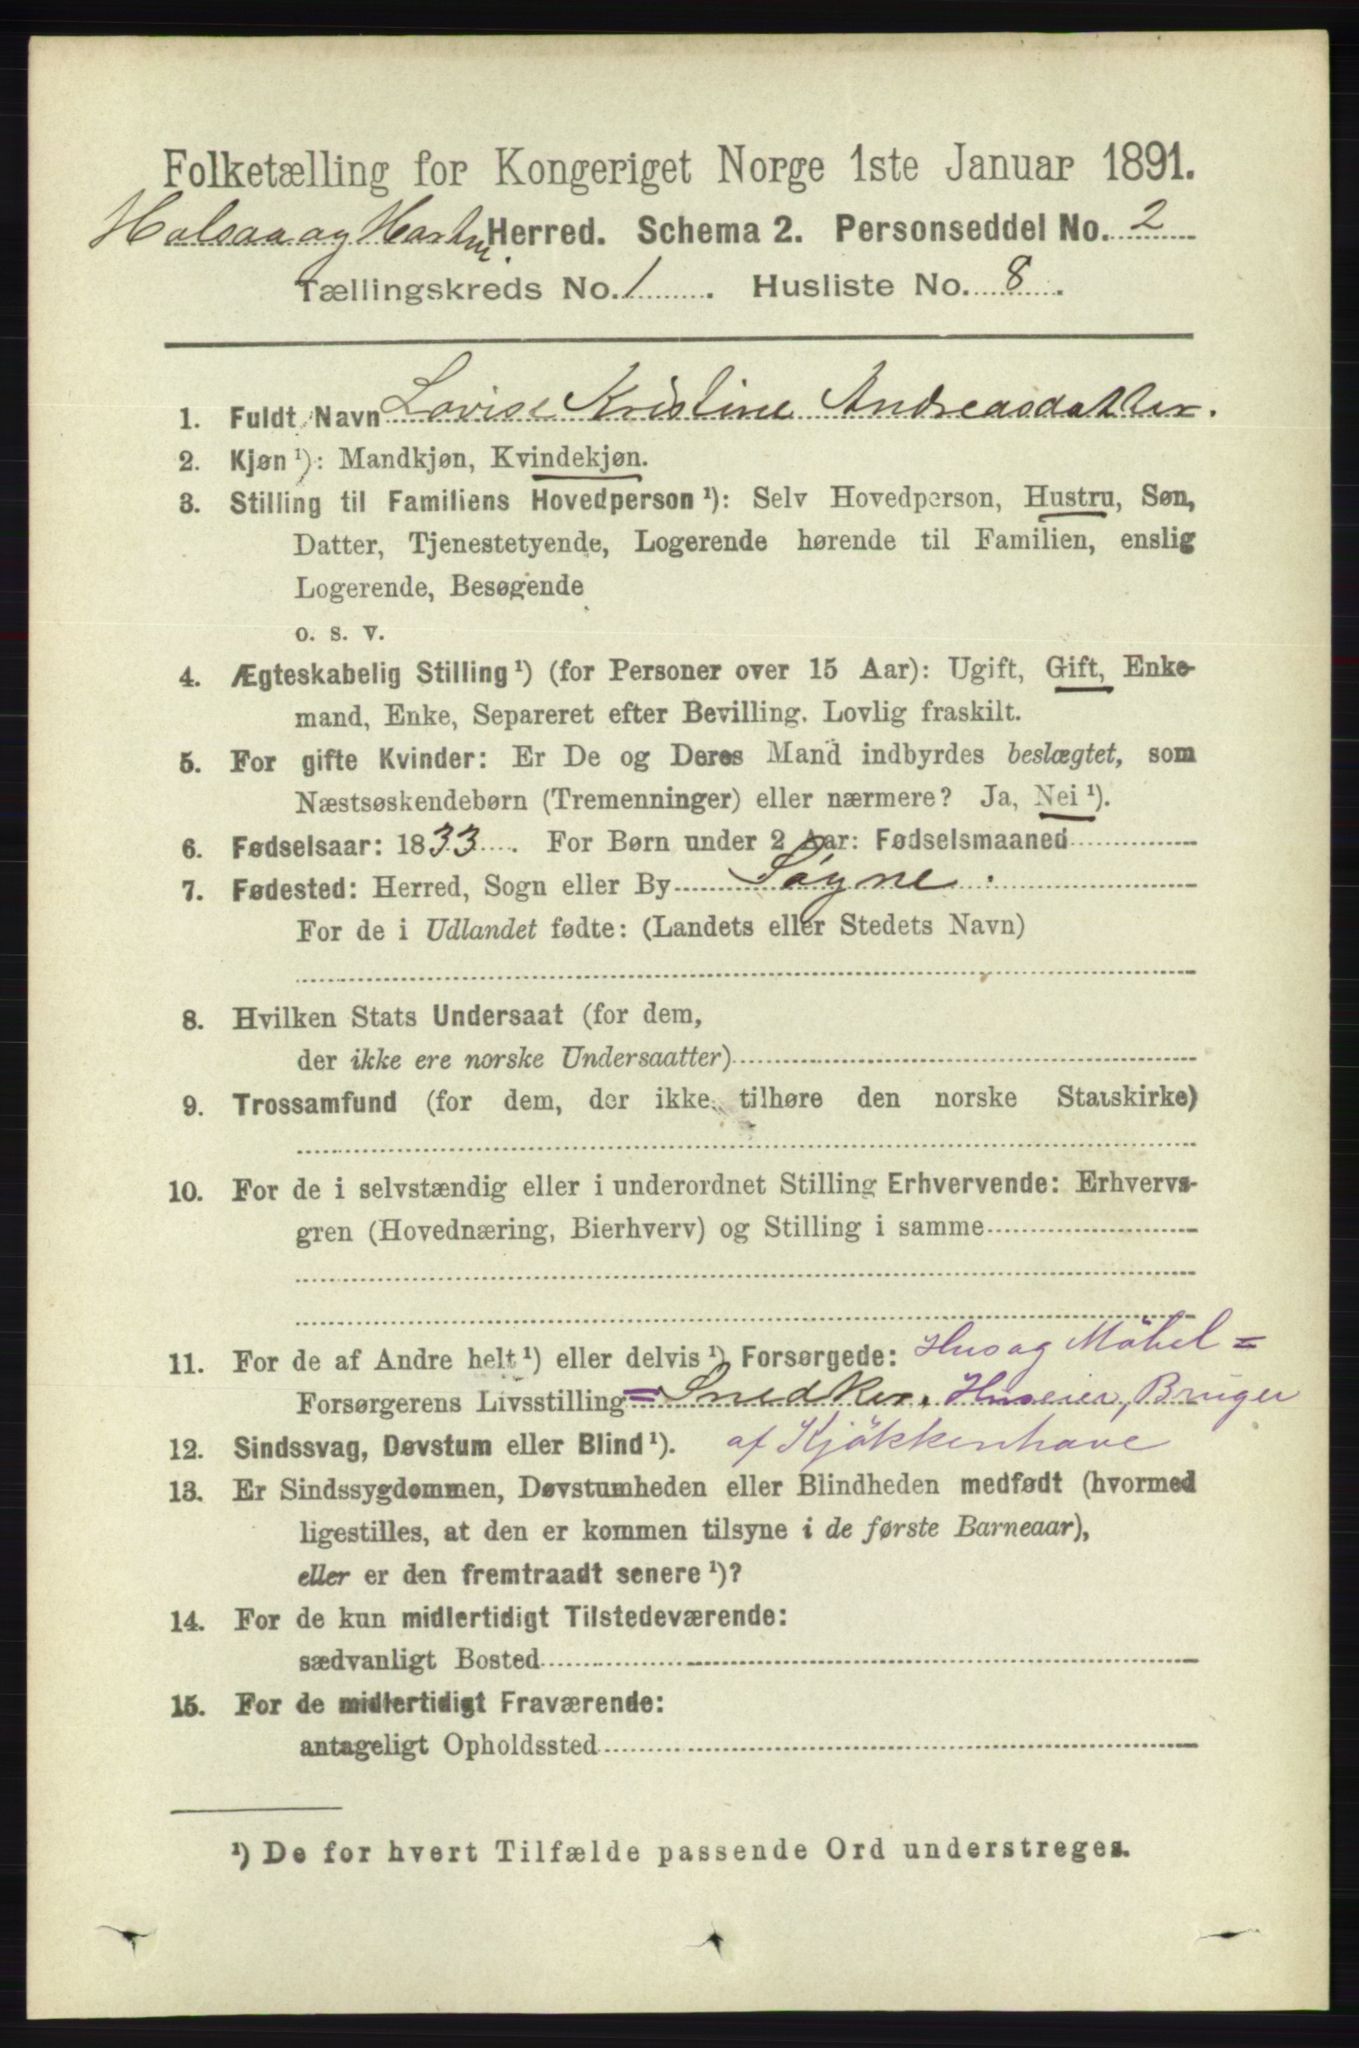 Folketælling for Kongeriget Norge 1ste Januar 1891.
Halsaa og Herred. Schema 2. Personseddel No. 2
Tællingskreds No. 1. Husliste No. 8.
1. Fuldt Navn Lovise Kristine Andreasdatter.
2. Kjøn ¹): Mandkjøn, Kvindekjøn.
3. Stilling til Familiens Hovedperson ¹): Selv Hovedperson, Hustru, Søn,
Datter, Tjenestetyende, Logerende hørende til Familien, enslig
Logerende, Besøgende
o. s. v.
4. Ægteskabelig Stilling ¹) (for Personer over 15 Aar): Ugift, Gift, Enke-
mand, Enke, Separeret efter Bevilling. Lovlig fraskilt.
5. For gifte Kvinder: Er De og Deres Mand indbyrdes beslægtet, som
Næstsøskendebørn (Tremenninger) eller nærmere? Ja, Nei ¹).
6. Fødselsaar: 1833. For Børn under 2 Aar: Fødselsmaaned
7. Fødested: Herred, Sogn eller By Søgne.
For de i Udlandet fødte: (Landets eller Stedets Navn)
8. Hvilken Stats Undersaat (for dem,
der ikke ere norske Undersaatter)
9. Trossamfund (for dem, der ikke tilhøre den norske Statskirke)
10. For de i selvstændig eller i underordnet Stilling Erhvervende: Erhvervs-
gren (Hovednæring, Bierhverv) og Stilling i samme
11. For de af Andre helt ¹) eller delvis ¹) Forsørgede: Hus og Möbel=
Forsørgerens Livsstilling =Snedker. Huseier, Bruger
12. Sindssvag, Døvstum eller Blind ¹). af Kjökkenhave
13. Er Sindssygdommen, Døvstumheden eller Blindheden medfødt (hvormed
ligestilles, at den er kommen tilsyne i de første Barneaar),
eller er den fremtraadt senere ¹)?
14. For de kun midlertidigt Tilstedeværende:
sædvanligt Bosted
15. For de midlertidigt Fraværende:
antageligt Opholdssted
¹) De for hvert Tilfælde passende Ord understreges.